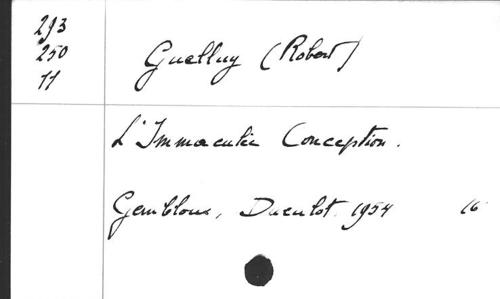 293
250
11
Guelluy (Robert)
L'Immaculée Conception.
Gembloux, Duculot. 1954 16